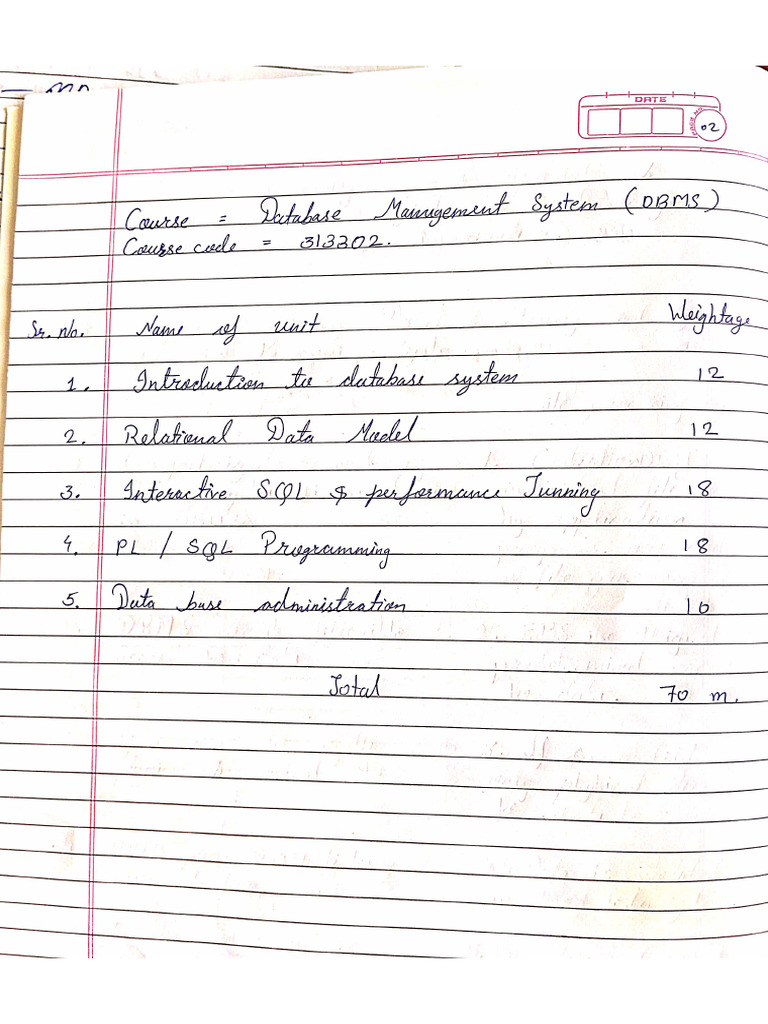 DATE
PAGE NO. 02
Course = Database Management System (DBMS)
Course code = 313302.
Sr. No. Name of unit Weightage
1. Introduction to database system 12
2. Relational Data Model 12
3. Interactive SQL & performance Tunning 18
4. PL / SQL Programming 18
5. Data base administration 10
Total 70 m.